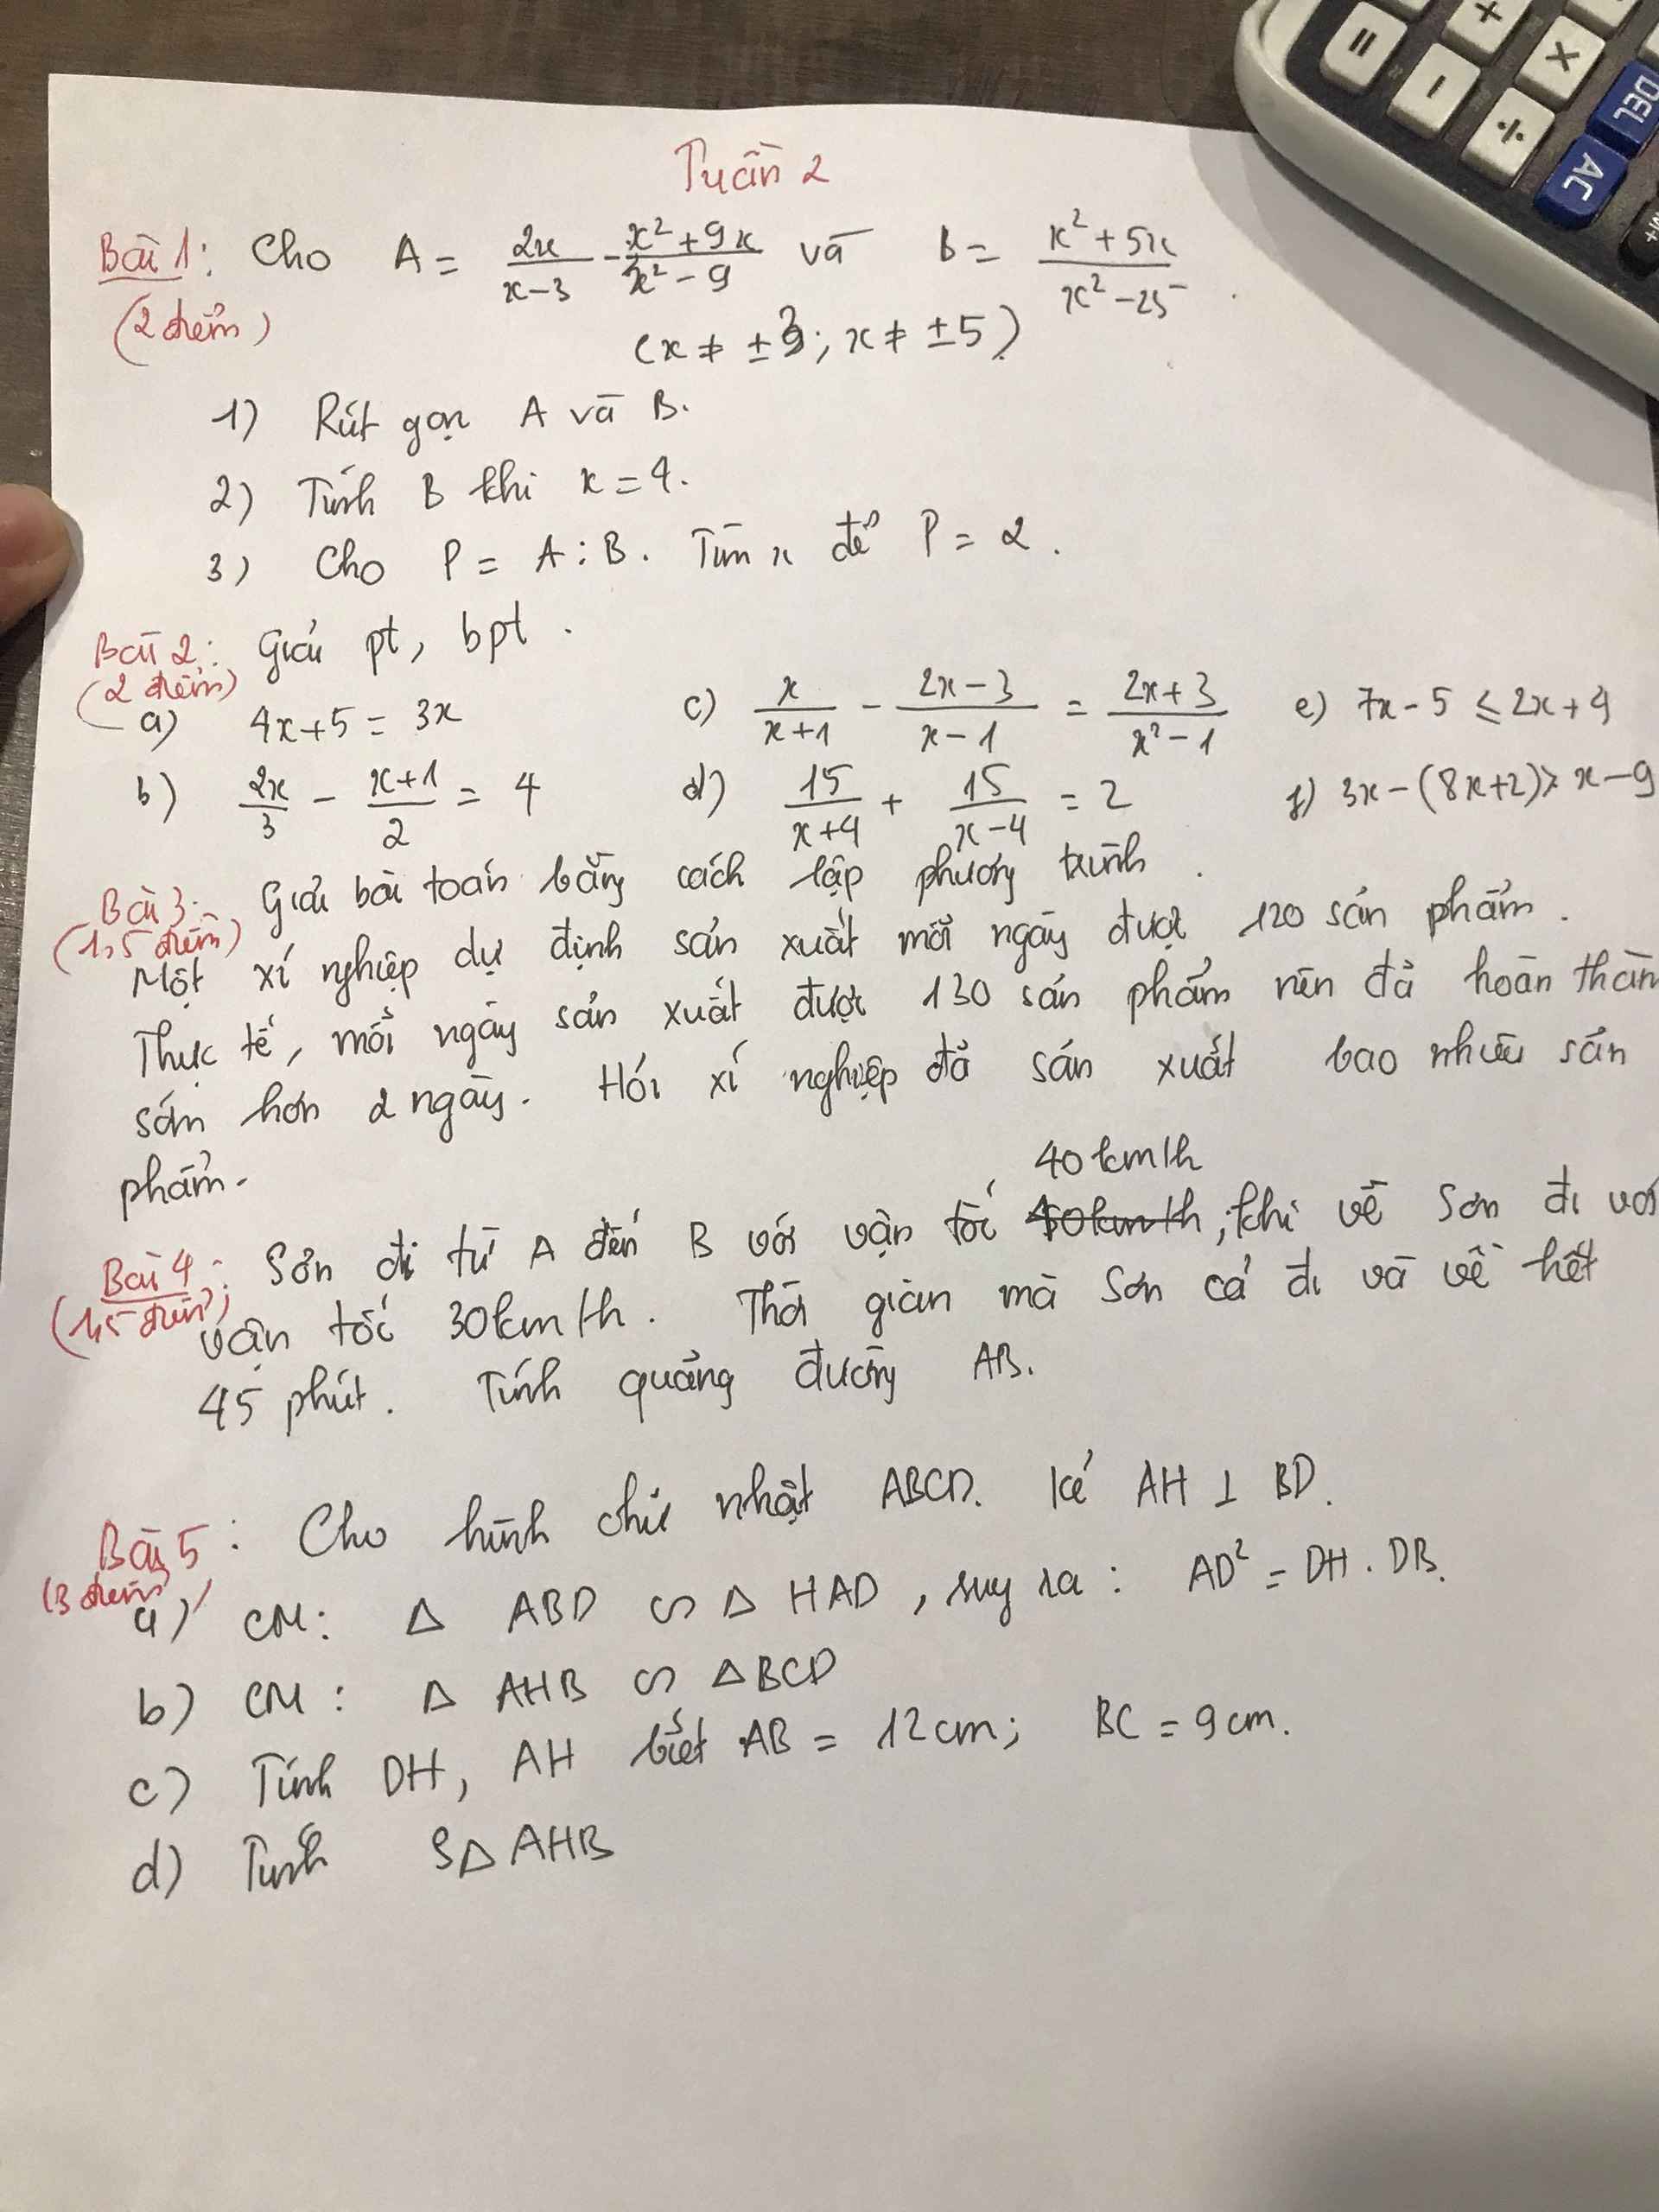 Tuần 2
Bài 1: Cho A = 2x/(x-3) - (x²+9x)/(x²-9) và B = (x²+5x)/(x²-25).
(2 điểm) (x ≠ ±3; x ≠ ±5)
1) Rút gọn A và B.
2) Tính B khi x = 4.
3) Cho P = A : B. Tìm x để P = 2.
Bài 2: Giải pt, bpt.
(2 điểm)
a) 4x+5 = 3x c) x/(x+1) - (2x-3)/(x-1) = (2x+3)/(x²-1) e) 7x-5 ≤ 2x+4
b) 2x/3 - (x+1)/2 = 4 d) 15/(x+4) + 15/(x-4) = 2 f) 3x-(8x+2) > x-9
Bài 3: Giải bài toán bằng cách lập phương trình.
(1,5 điểm)
Một xí nghiệp dự định sản xuất mỗi ngày được 120 sản phẩm.
Thực tế, mỗi ngày sản xuất được 130 sản phẩm nên đã hoàn thàn
sớm hơn 2 ngày. Hỏi xí nghiệp đã sản xuất bao nhiêu sản
phẩm.
40km/h
Bài 4: Sơn đi từ A đến B với vận tốc km/h, khi về Sơn đi vớ
(1,5 điểm) vận tốc 30km/h. Thời gian mà Sơn cả đi và về hết
45 phút. Tính quãng đường AB.
Bài 5: Cho hình chữ nhật ABCD. Kẻ AH ⊥ BD.
(3 điểm)
a) CM: Δ ABD ∽ Δ HAD, suy ra: AD² = DH . DB.
b) CM: Δ AHB ∽ Δ BCD
c) Tính DH, AH biết AB = 12cm; BC = 9cm.
d) Tính SΔ AHB
=
+
-
×
÷
DEL
AC
M+